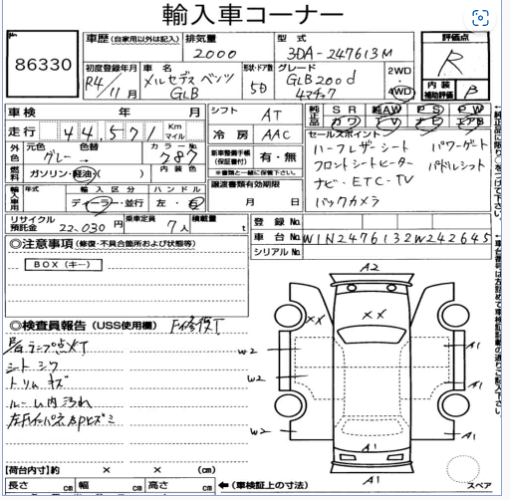 輸入車コーナー
No.
86330
車歴 (自家用以外は記入)
排気量
2000
型式
3DA-247613M
評価点
R
内装
補助評価
B
初度登録年月
R4/11月
車名
メルセデス ベンツ
GLB
形状・ドア数
5D
グレード
GLB200d
4マチック
2WD
4WD
車検 年 月
シフト AT
純正品 SR 純AW PS PW
カワ TV ナビ エアB
走行 44,571 Km マイル
冷房 AAC
セールスポイント
ハーフレザーシート パワーゲート
フロントシートヒーター パドルシフト
ナビ・ETC・TV
バックカメラ
外色 元色 色替 カラーNo.
グレー→ 787
新車整備手帳
(保証書付)
有・無
※書類と一緒に保管下さい。
燃料 ガソリン・軽油・( ) 内装色
譲渡書類有効期限
月 日
輸入車用 年式 輸入区分 ハンドル
ディーラー・並行 左・右
リサイクル預託金 22,030円 乗車定員 7人 積載量 t
登録No.
車台No. W1N2476132W242645
シリアルNo.
◎注意事項 (修復・不具合箇所および状態等)
BOX(キー)
◎検査員報告 (USS使用欄) Fィ修復T
ランプ点灯
シートシワ
トリムキズ
ルーム内汚れ
左Fインパネ
A2
XX
XX
W2
A1
W2
A1
W2
A1
A1
A1
スペア
【荷台内寸】約 × × (cm)
長さ cm 幅 cm 高さ cm
←(車検証上の寸法)